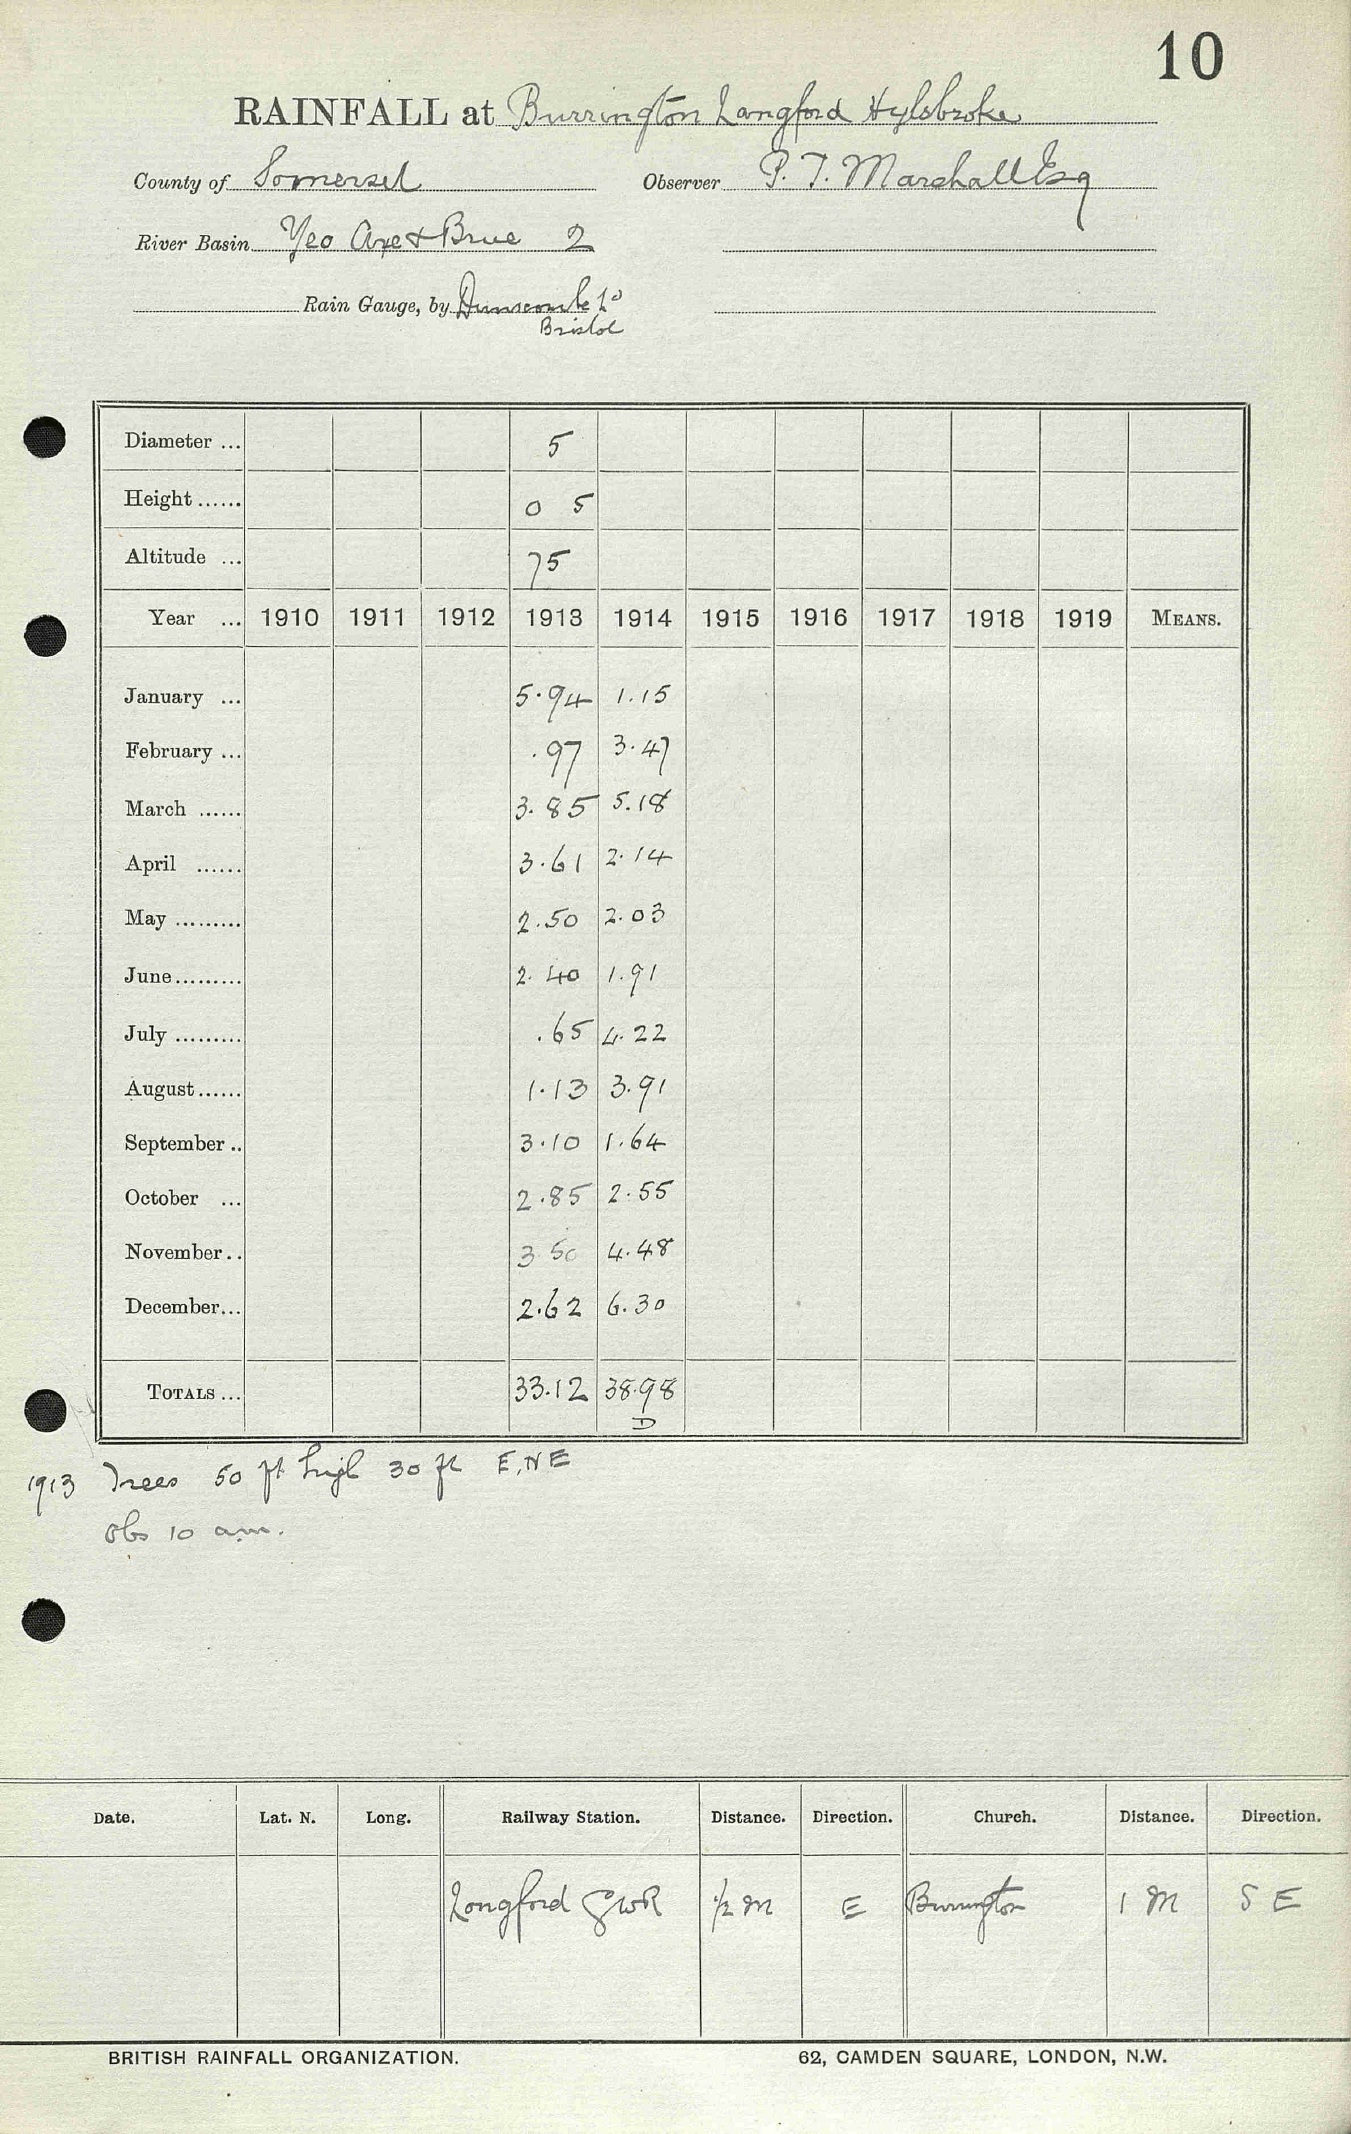 10
RAINFALL at Burrington Langford Hylsbroke
County of Somerset Observer P. T. Marshall Esq
River Basin Yeo Axe & Brue 2
Rain Gauge, by Dunscombe Ld
Bristol
Diameter ... 5
Height ...... 0 5
Altitude ... 75
Year ... 1910 1911 1912 1913 1914 1915 1916 1917 1918 1919 MEANS.
January ... 5.94 1.15
February ... .97 3.47
March ...... 3.85 5.18
April ...... 3.61 2.14
May ......... 2.50 2.03
June ......... 2.40 1.91
July ......... .65 4.22
August ...... 1.13 3.91
September .. 3.10 1.64
October ... 2.85 2.55
November .. 3 50 4.48
December ... 2.62 6.30
TOTALS ... 33.12 38.98
D
1913 Trees 50 ft high 30 ft E, NE
Obs 10 a.m.
Date. Lat. N. Long. Railway Station. Distance. Direction. Church. Distance. Direction.
Longford GWR 1/2 M E Burrington 1 M S E
BRITISH RAINFALL ORGANIZATION. 62, CAMDEN SQUARE, LONDON, N.W.